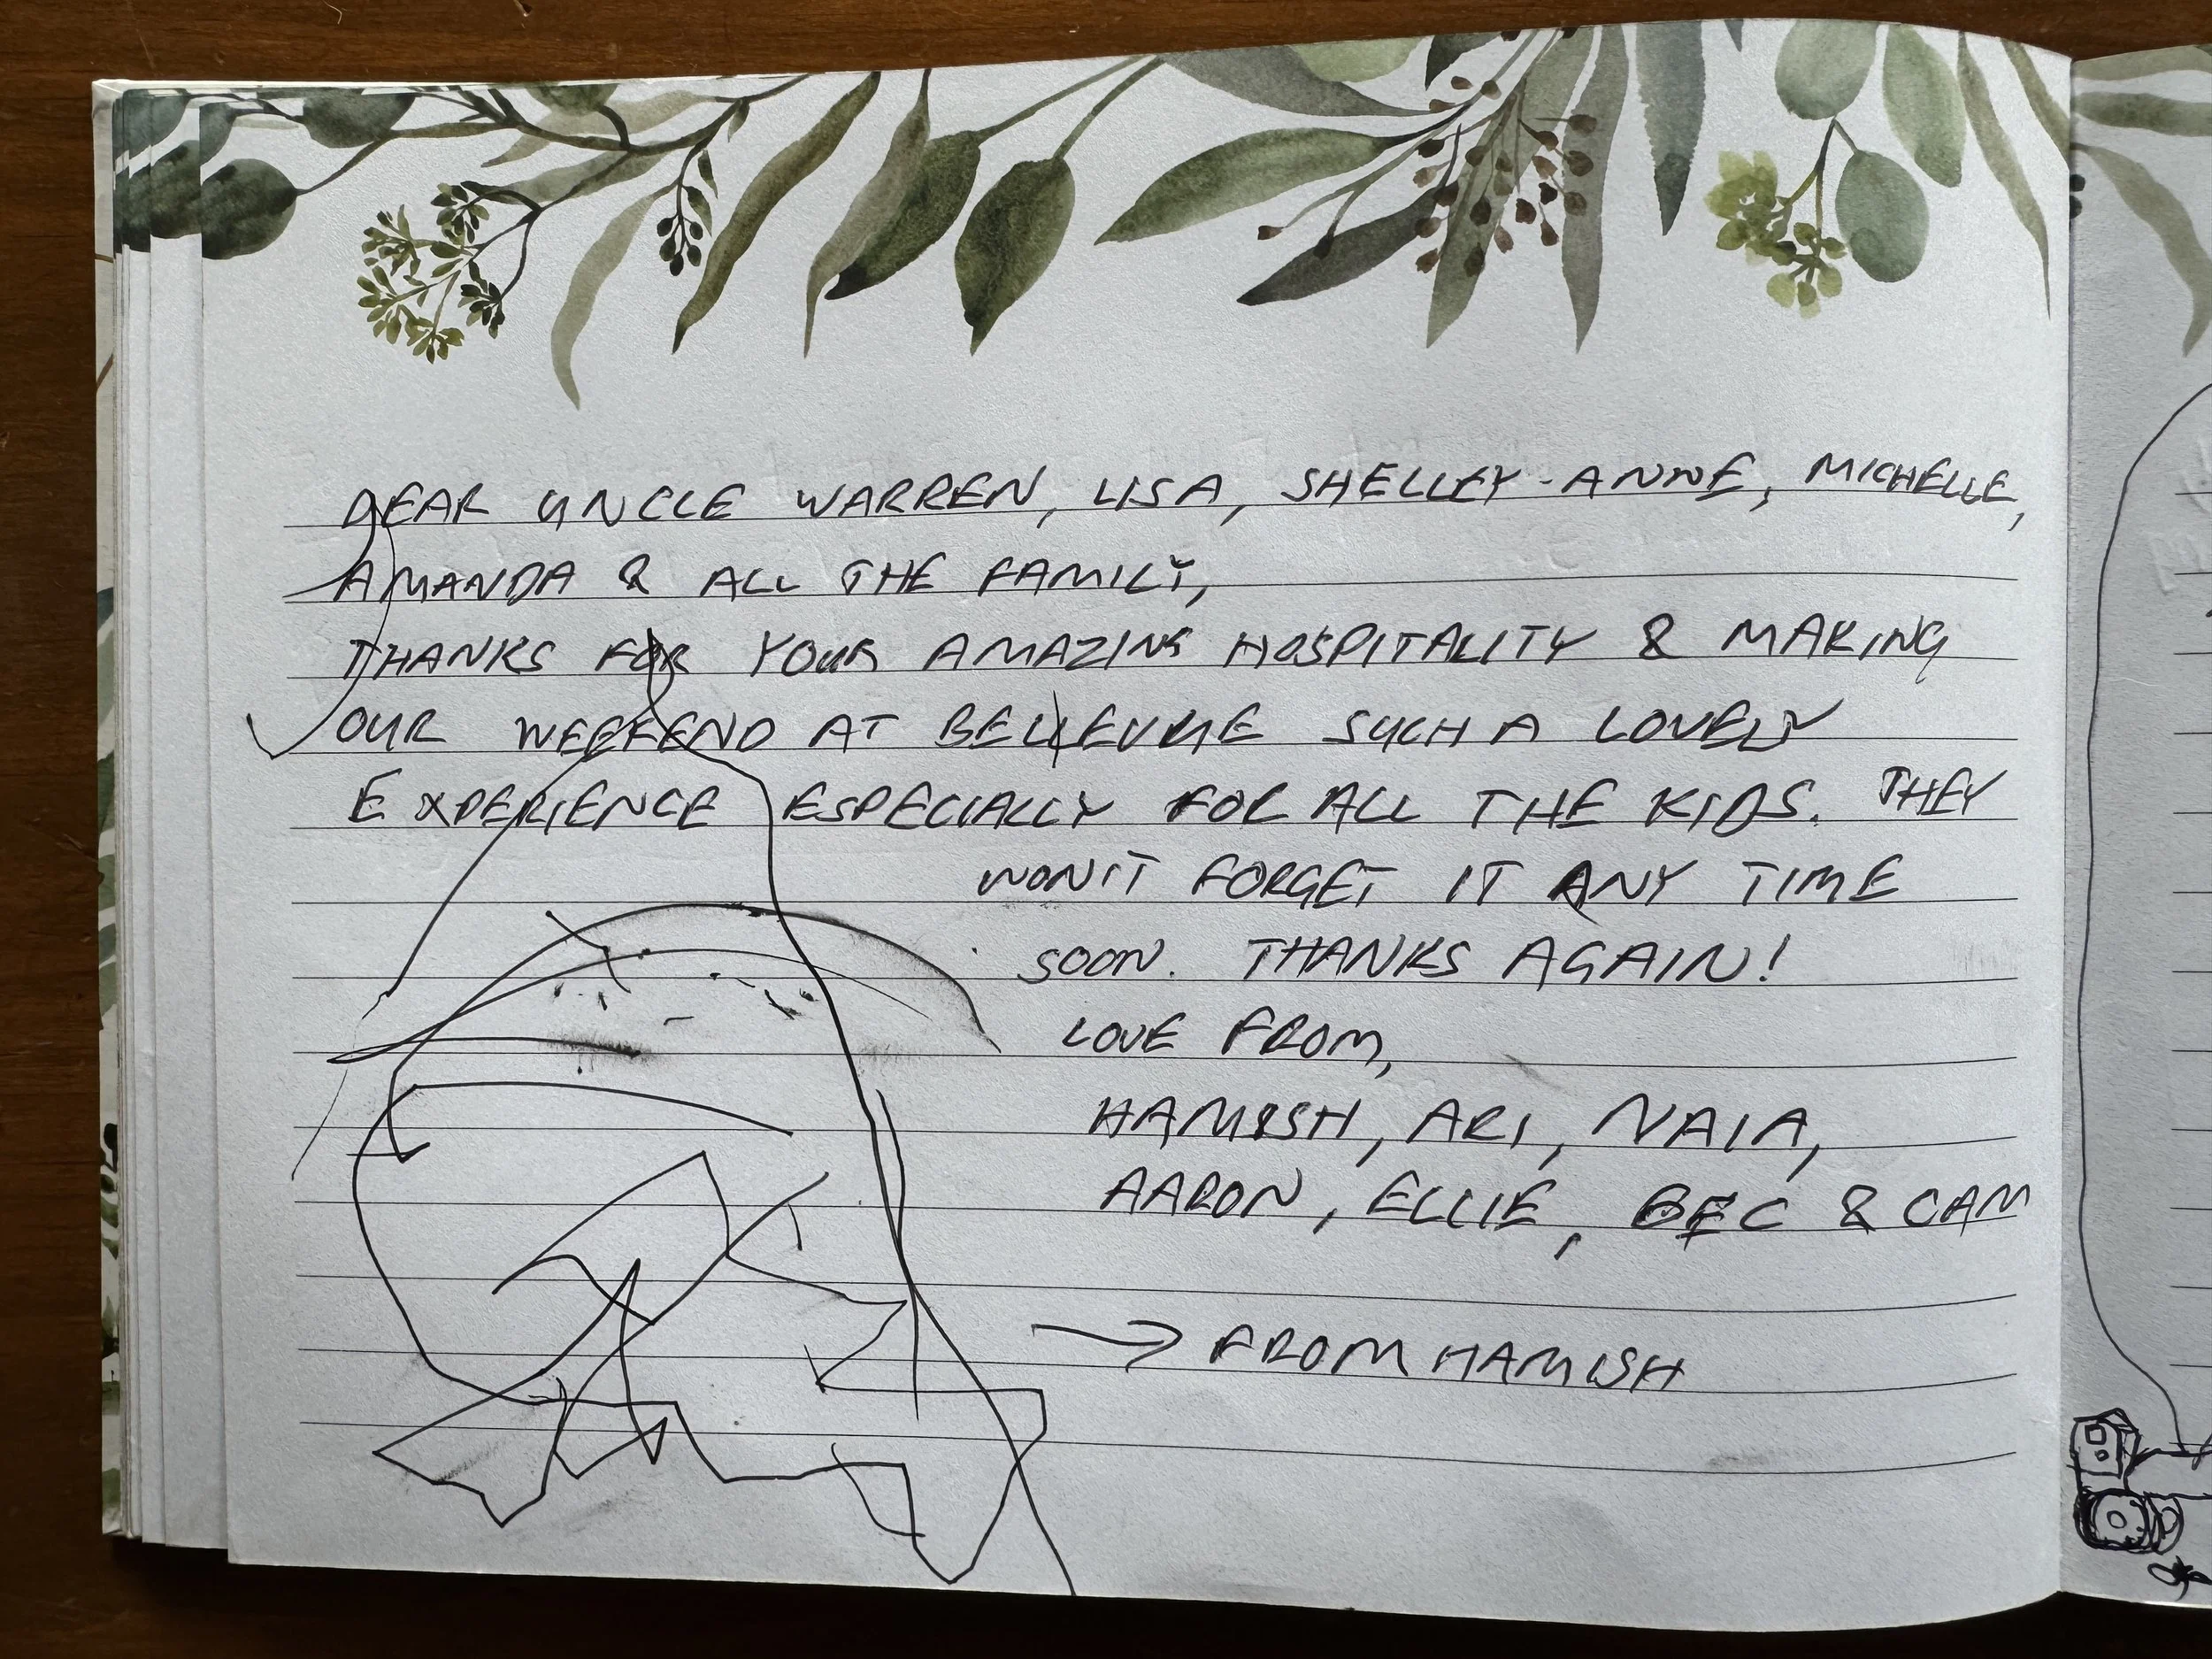 DEAR UNCLE WARREN, LISA, SHELLEY-ANNE, MICHELLE,
AMANDA & ALL THE FAMILY,
THANKS FOR YOUR AMAZING HOSPITALITY & MAKING
OUR WEEKEND AT BELLEVUE SUCH A LOVELY
EXPERIENCE ESPECIALLY FOR ALL THE KIDS. THEY
WON'T FORGET IT ANY TIME
SOON. THANKS AGAIN!
LOVE FROM,
HAMISH, ARI, NAIA,
AARON, ELLIE, BEC & CAM
→ FROM HAMISH